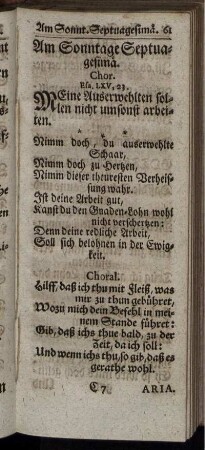 Am Sonnt. Septuagesimâ. 61
Am Sonntage Septua-
gesimâ.
Chor.
Es. LXV, 23.
MEine Auserwehlten sol-
len nicht umsonst arbei-
ten.
* * *
Nimm doch, du auserwehlte
Schaar,
Nimm doch zu Hertzen,
Nimm dieser theuresten Verheis-
sung wahr.
Ist deine Arbeit gut,
Kanst du den Gnaden-Lohn wohl
nicht verschertzen:
Denn deine redliche Arbeit,
Soll sich belohnen in der Ewig-
keit.
Choral.
Hilff, daß ich thu mit Fleiß, was
mir zu thun gebühret,
Wozu mich dein Befehl in mei-
nem Stande führet:
Gib, daß ichs thue bald, zu der
Zeit, da ich soll:
Und wenn ichs thu, so gib, daß es
gerathe wohl.
C 7 ARIA.